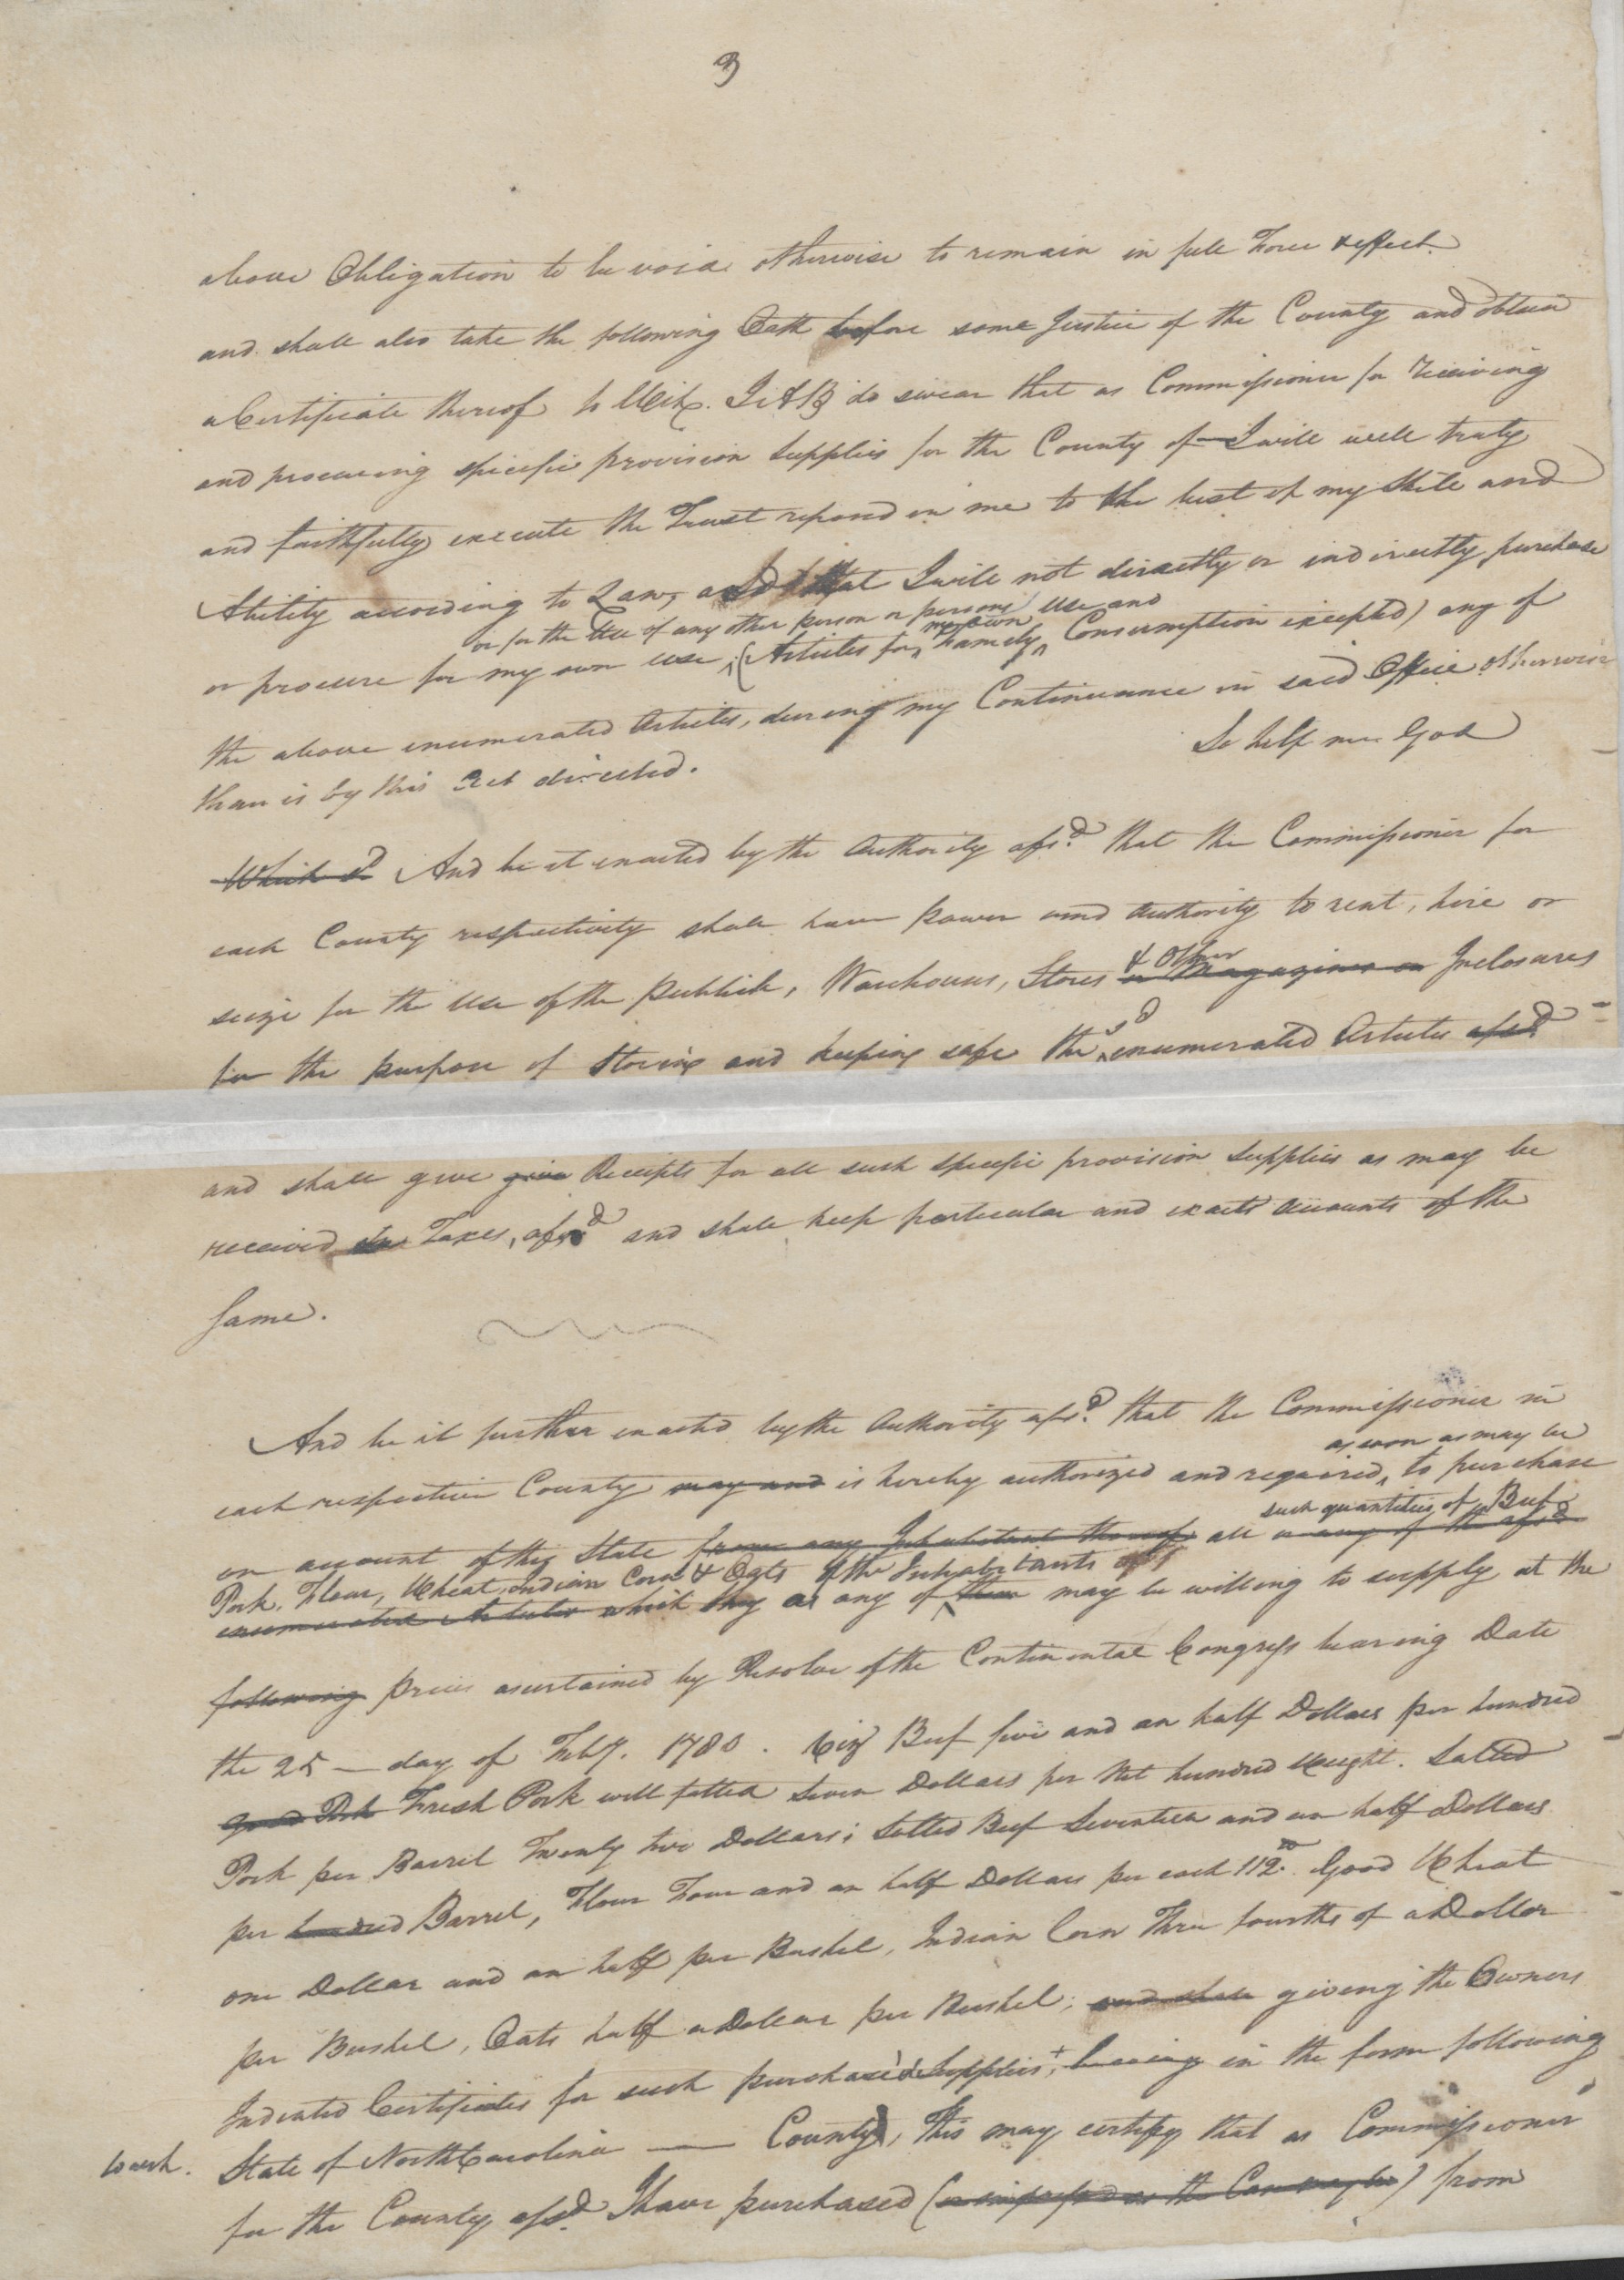 3
above Obligation to be void otherwise to remain in full Force & effect.
and shall also take the following Oath before some Justice of the County and obtain
a Certificate thereof to Wit. I A B do swear that as Commissioner for receiving
and procuring specific provision supplies for the County of — I will well truly
and faithfully execute the Trust reposed in me to the best of my Skill and
Ability according to Law, and that I will not directly or indirectly purchase
or for the Use of any other person or persons my own Use and
or procure for my own use, (Articles for family Consumption excepted) any of
the above enumerated Articles, during my Continuance in said Office otherwise
than is by this Act directed. So help me God
Which sd And be it enacted by the Authority afsd. that the Commissioner for
each County respectively shall have power and authority to rent, hire or
& Other
seize for the use of the publick, Warehouses, Stores or Magazines or Inclosures
sd
for the purpose of storing and keeping safe the enumerated Articles afsd
and shall give give Receipts for all such specific provision supplies as may be
received in Taxes, afsd and shall keep particular and exact accounts of the
Same.
And be it further enacted by the Authority afsd. that the Commissioner in
as soon as may be
each respective County may and is hereby authorized and required, to purchase
such quantities of Beef
on account of this State from any Inhabitant thereof all or any of the afsd
Pork, Flour, Wheat, Indian Corn & Oats of the Inhabitants
enumerated Articles which they or any of them may be willing to supply at the
following prices ascertained by Resolve of the Continental Congress bearing Date
the 25 — day of Feby. 1780. Viz Beef five and an half Dollars per hundred
good Pork Fresh Pork well fatted Seven Dollars per Net hundred Weight. Salted
Pork per Barrel Twenty two Dollars; Salted Beef Seventeen and an half Dollars
per hundred Barrel, Flour Four and an half Dollars per each 112. Good Wheat
one Dollar and an half per Bushel, Indian Corn Three fourths of a Dollar
per Bushel, Oats half a Dollar per Bushel; and shall giving the Owners
Indented Certificates for such purchased Supplies, in the form following
to wit. State of North Carolina — County, This may certify that as Commissioner
for the County afsd. I have purchased (or impressed as the Case may be) from